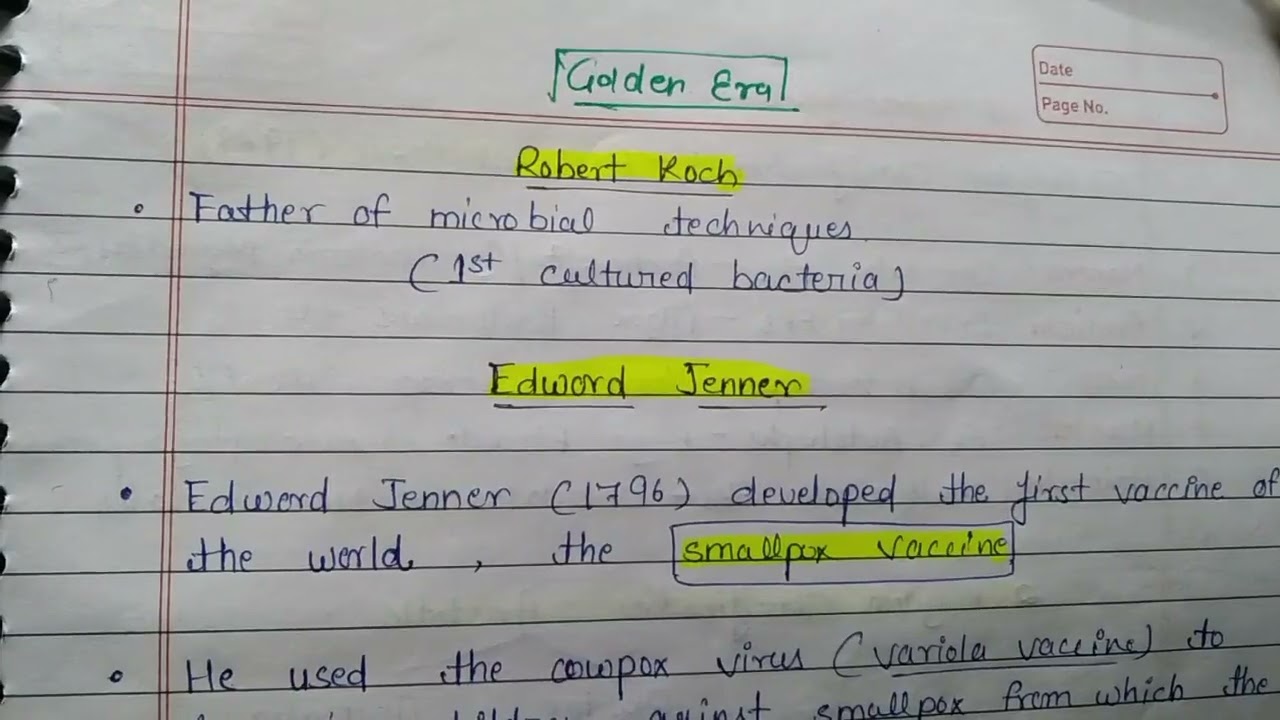 Golden Era
Date
Page No.
Robert Koch
• Father of microbial techniques
(1st cultured bacteria)
Edward Jenner
• Edword Jenner (1796) developed the first vaccine of
the world, the smallpox vaccine
• He used the cowpox virus (variola vaccine) to
against smallpox from which the